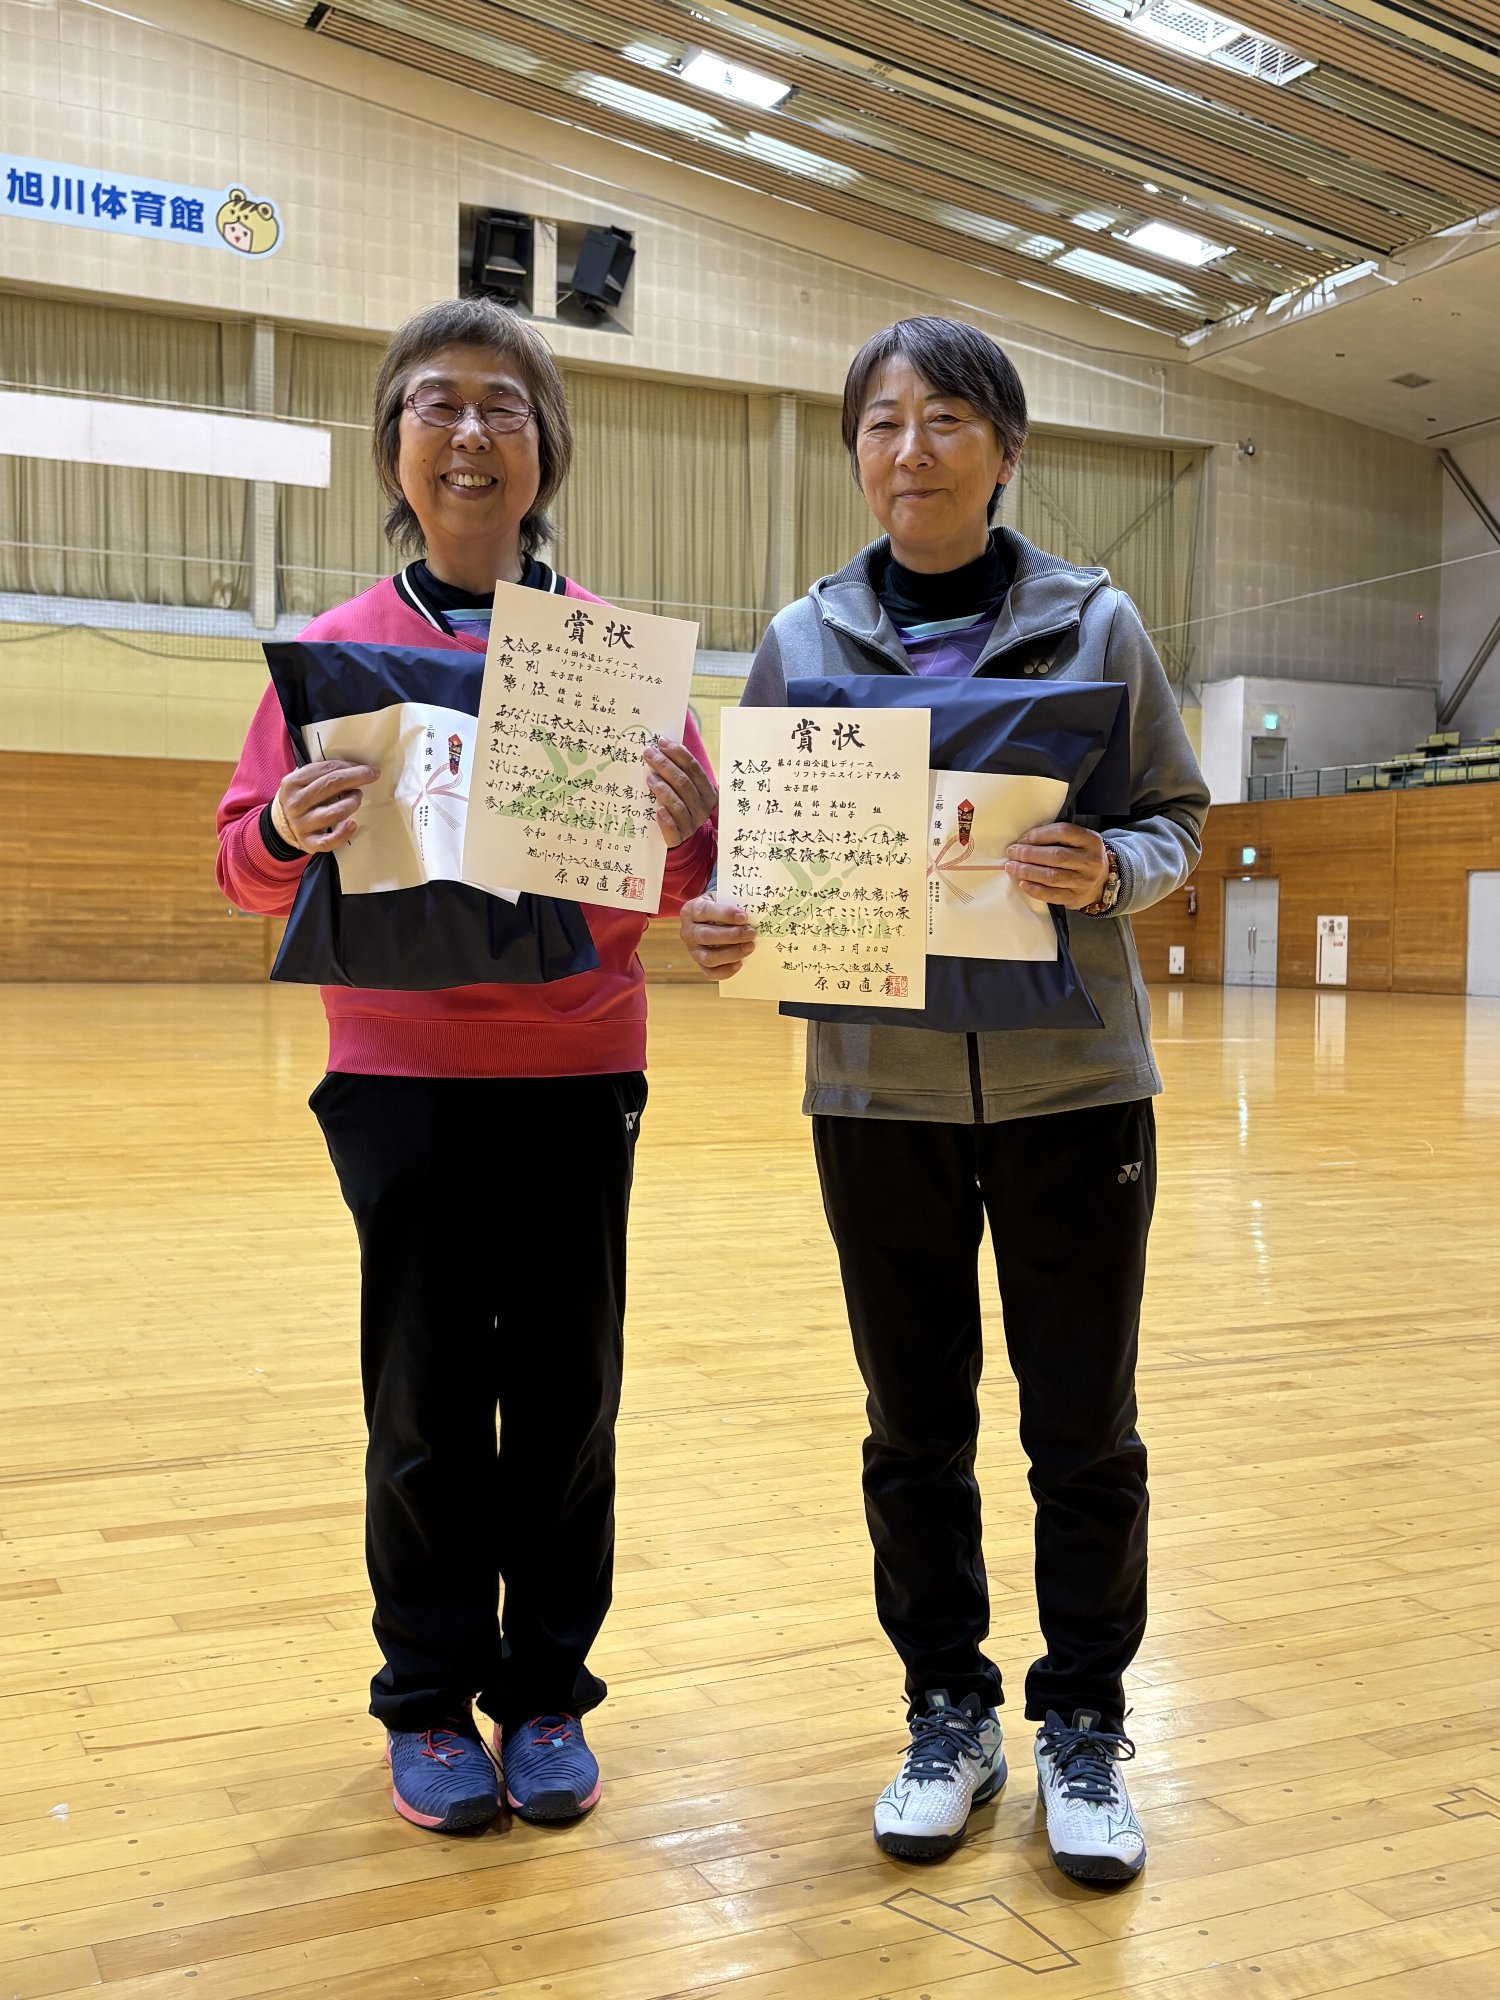 旭川体育館
賞状
大会名 第44回全道レディース
ソフトテニスインドア大会
種別 女子Ⅲ部
第1位 横山礼子
坂部美由紀 組
あなたは本大会において真勢
敢斗の結果優秀な成績を収め
ました
これはあなたが心技の錬磨に努
めた成果であります。ここにその栄
誉を讃え賞状を授与いたします。
令和8年3月20日
旭川ソフトテニス連盟会長
原田直彦
三部優勝
賞状
大会名 第44回全道レディース
ソフトテニスインドア大会
種別 女子Ⅲ部
第1位 坂部美由紀 組
横山礼子
あなたは本大会において真勢
敢斗の結果優秀な成績を収め
ました
これはあなたが心技の錬磨に努
めた成果であります。ここにその栄
誉を讃え賞状を授与いたします。
令和8年3月20日
旭川ソフトテニス連盟会長
原田直彦
三部優勝